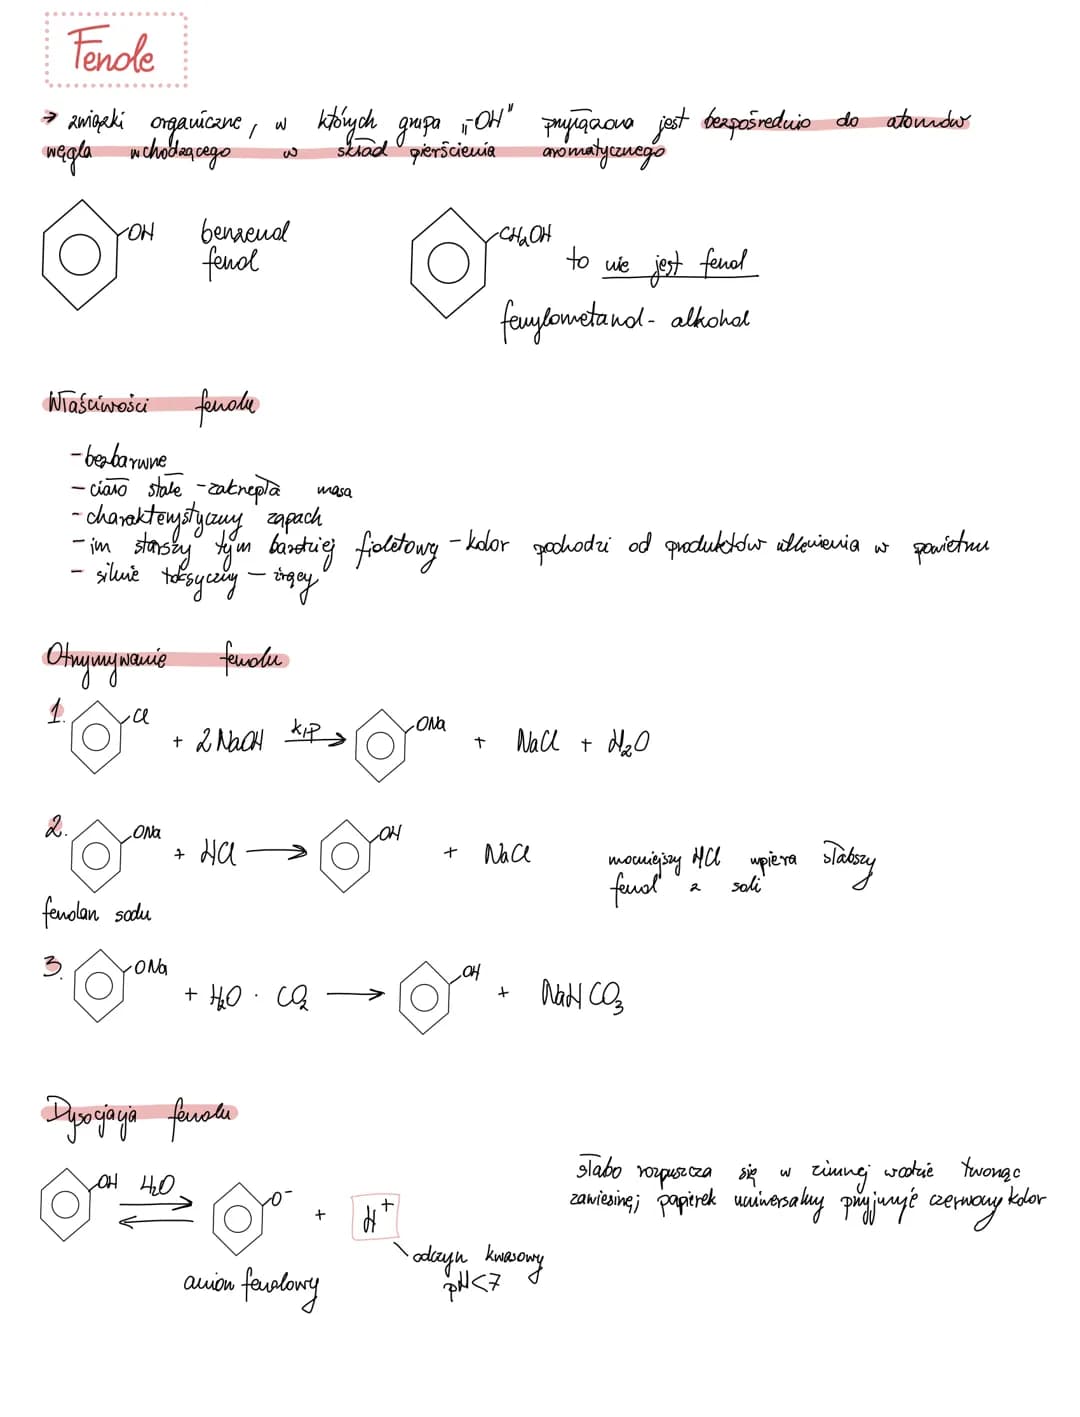 Fenole
→ związki organiczne, w których grupa „-OH" przyłączona jest bezpośrednio do atomów
węgla wchodzącego w skład pierścienia aromatycznego
OH benzenol
fenol
CH₂OH
to nie jest fenol
fenylometanol - alkohol
Właściwości fenolu
- bezbarwne
- ciało stałe - zakrzepła masa
- charakterystyczny zapach
- im starszy tym bardziej fioletowy - kolor pochodzi od produktów utlenienia w powietrzu
- silnie toksyczny - żrący
Otrzymywanie fenolu
1. Cl + 2 NaOH k,p → ONa + NaCl + H₂O
2. ONa + HCl → OH + NaCl
mocniejszy HCl wpiera słabszy
fenol z soli
fenolan sodu
3. ONa + H₂O · CO₂ → OH + NaHCO₃
Dysocjacja fenolu
OH H₂O ⇌ O⁻ + H⁺
słabo rozpuszcza się w zimnej wodzie tworząc
zawiesinę; papierek uniwersalny przyjmuje czerwony kolor
odczyn kwasowy
pH<7
anion fenolowy